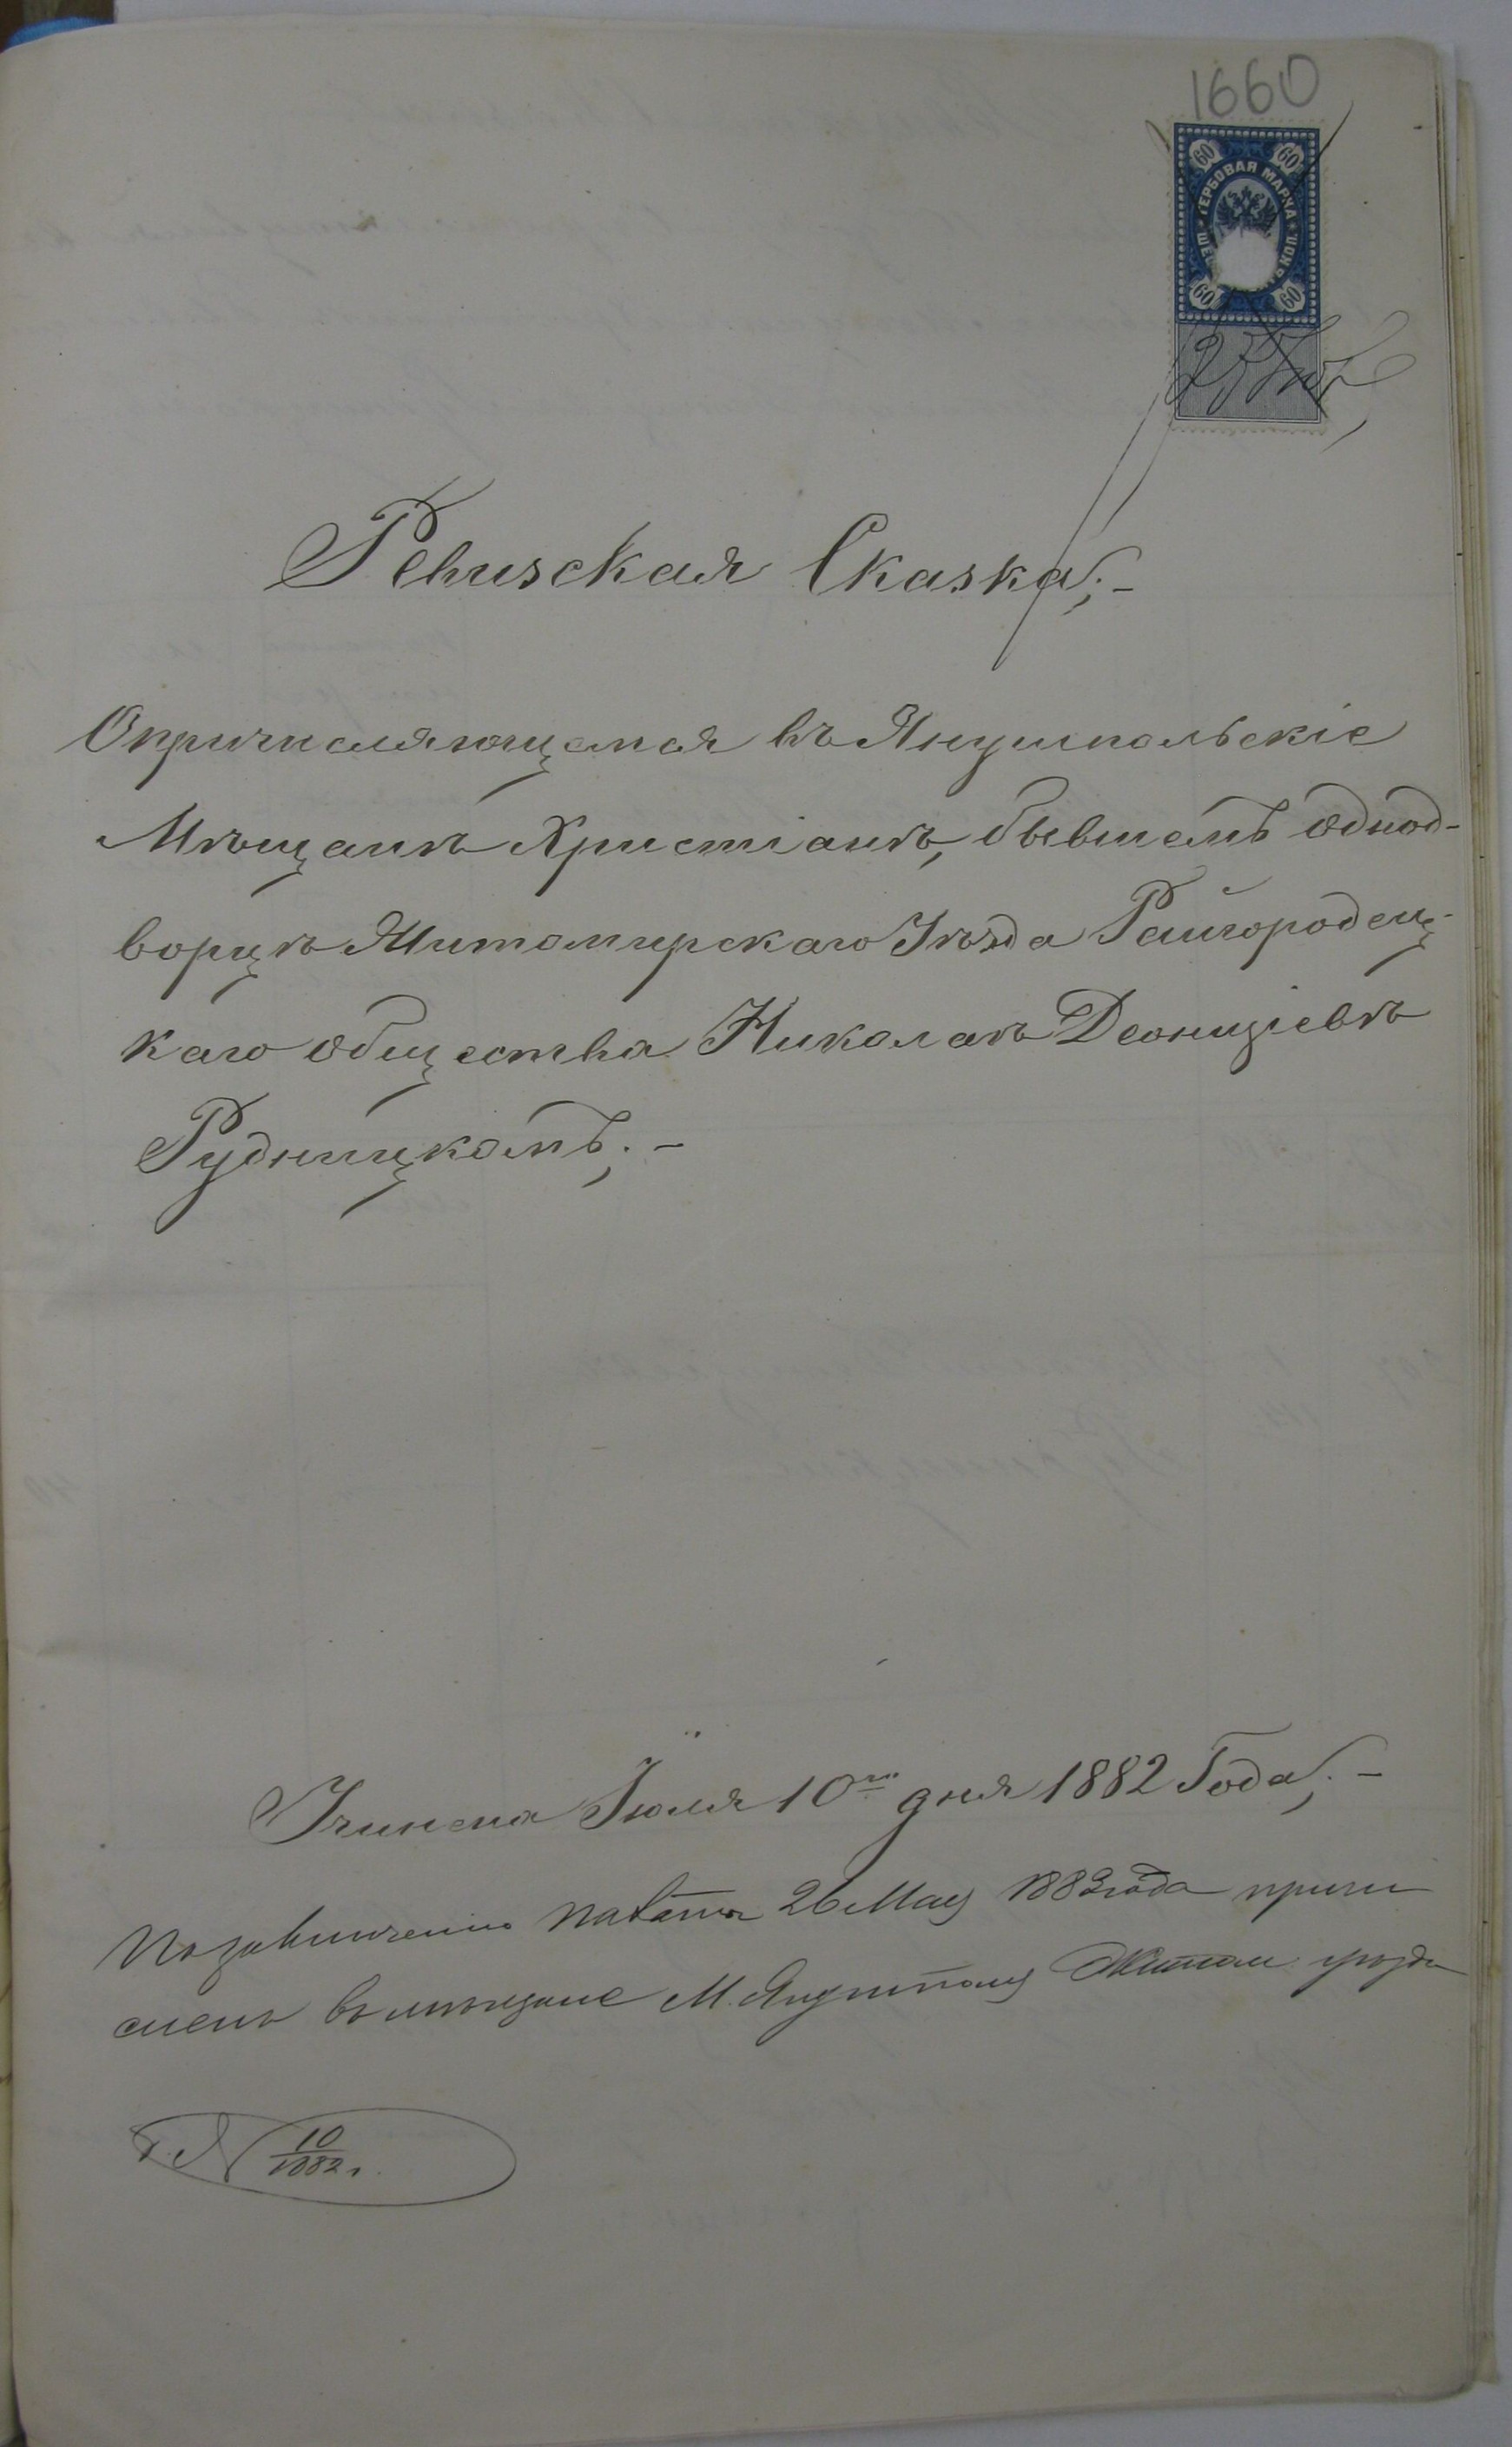 1660
60 60
ГЕРБОВАЯ МАРКА
КОП
60 60
Ревизская Сказка;-
О причисляющемся въ Янушпольскіе
Мѣщанѣ Христіанѣ, бывшемъ однод-
ворцѣ Житомирскаго Уѣзда Райгородец-
каго общества Николаѣ Деонизіевѣ
Рудницкомъ;-
Учинена Іюля 10го дня 1882 Года;-
Палаты 26 Мая 1883 года причи
сленъ въ мѣщане М. Янушполя Житом уѣзда
10
1882 г.